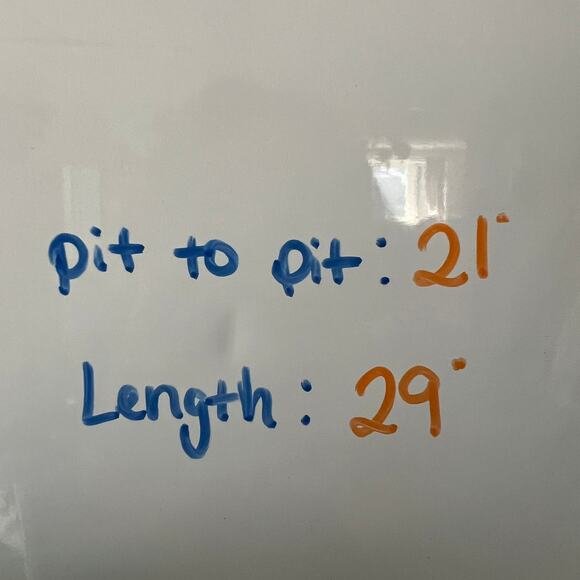 pit to pit: 21"
Length: 29"